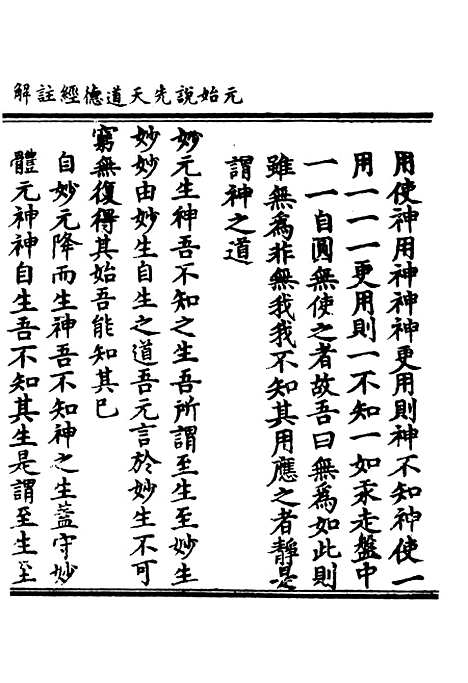 元始說先天道德經註解
用使神用神神神更用則神不知神使一
用一一一更用則一不知一如汞走盤中
一一自圓無使之者故吾曰無為如此則
雖無為非無我我不知其用應之者靜是
謂神之道
妙元生神吾不知之生吾所謂至生至妙生
妙妙由妙生自生之道吾元言於妙生不可
窮無復得其始吾能知其已
自妙元降而生神吾不知神之生蓋守妙
體元神神自生吾不知其生是謂至生至